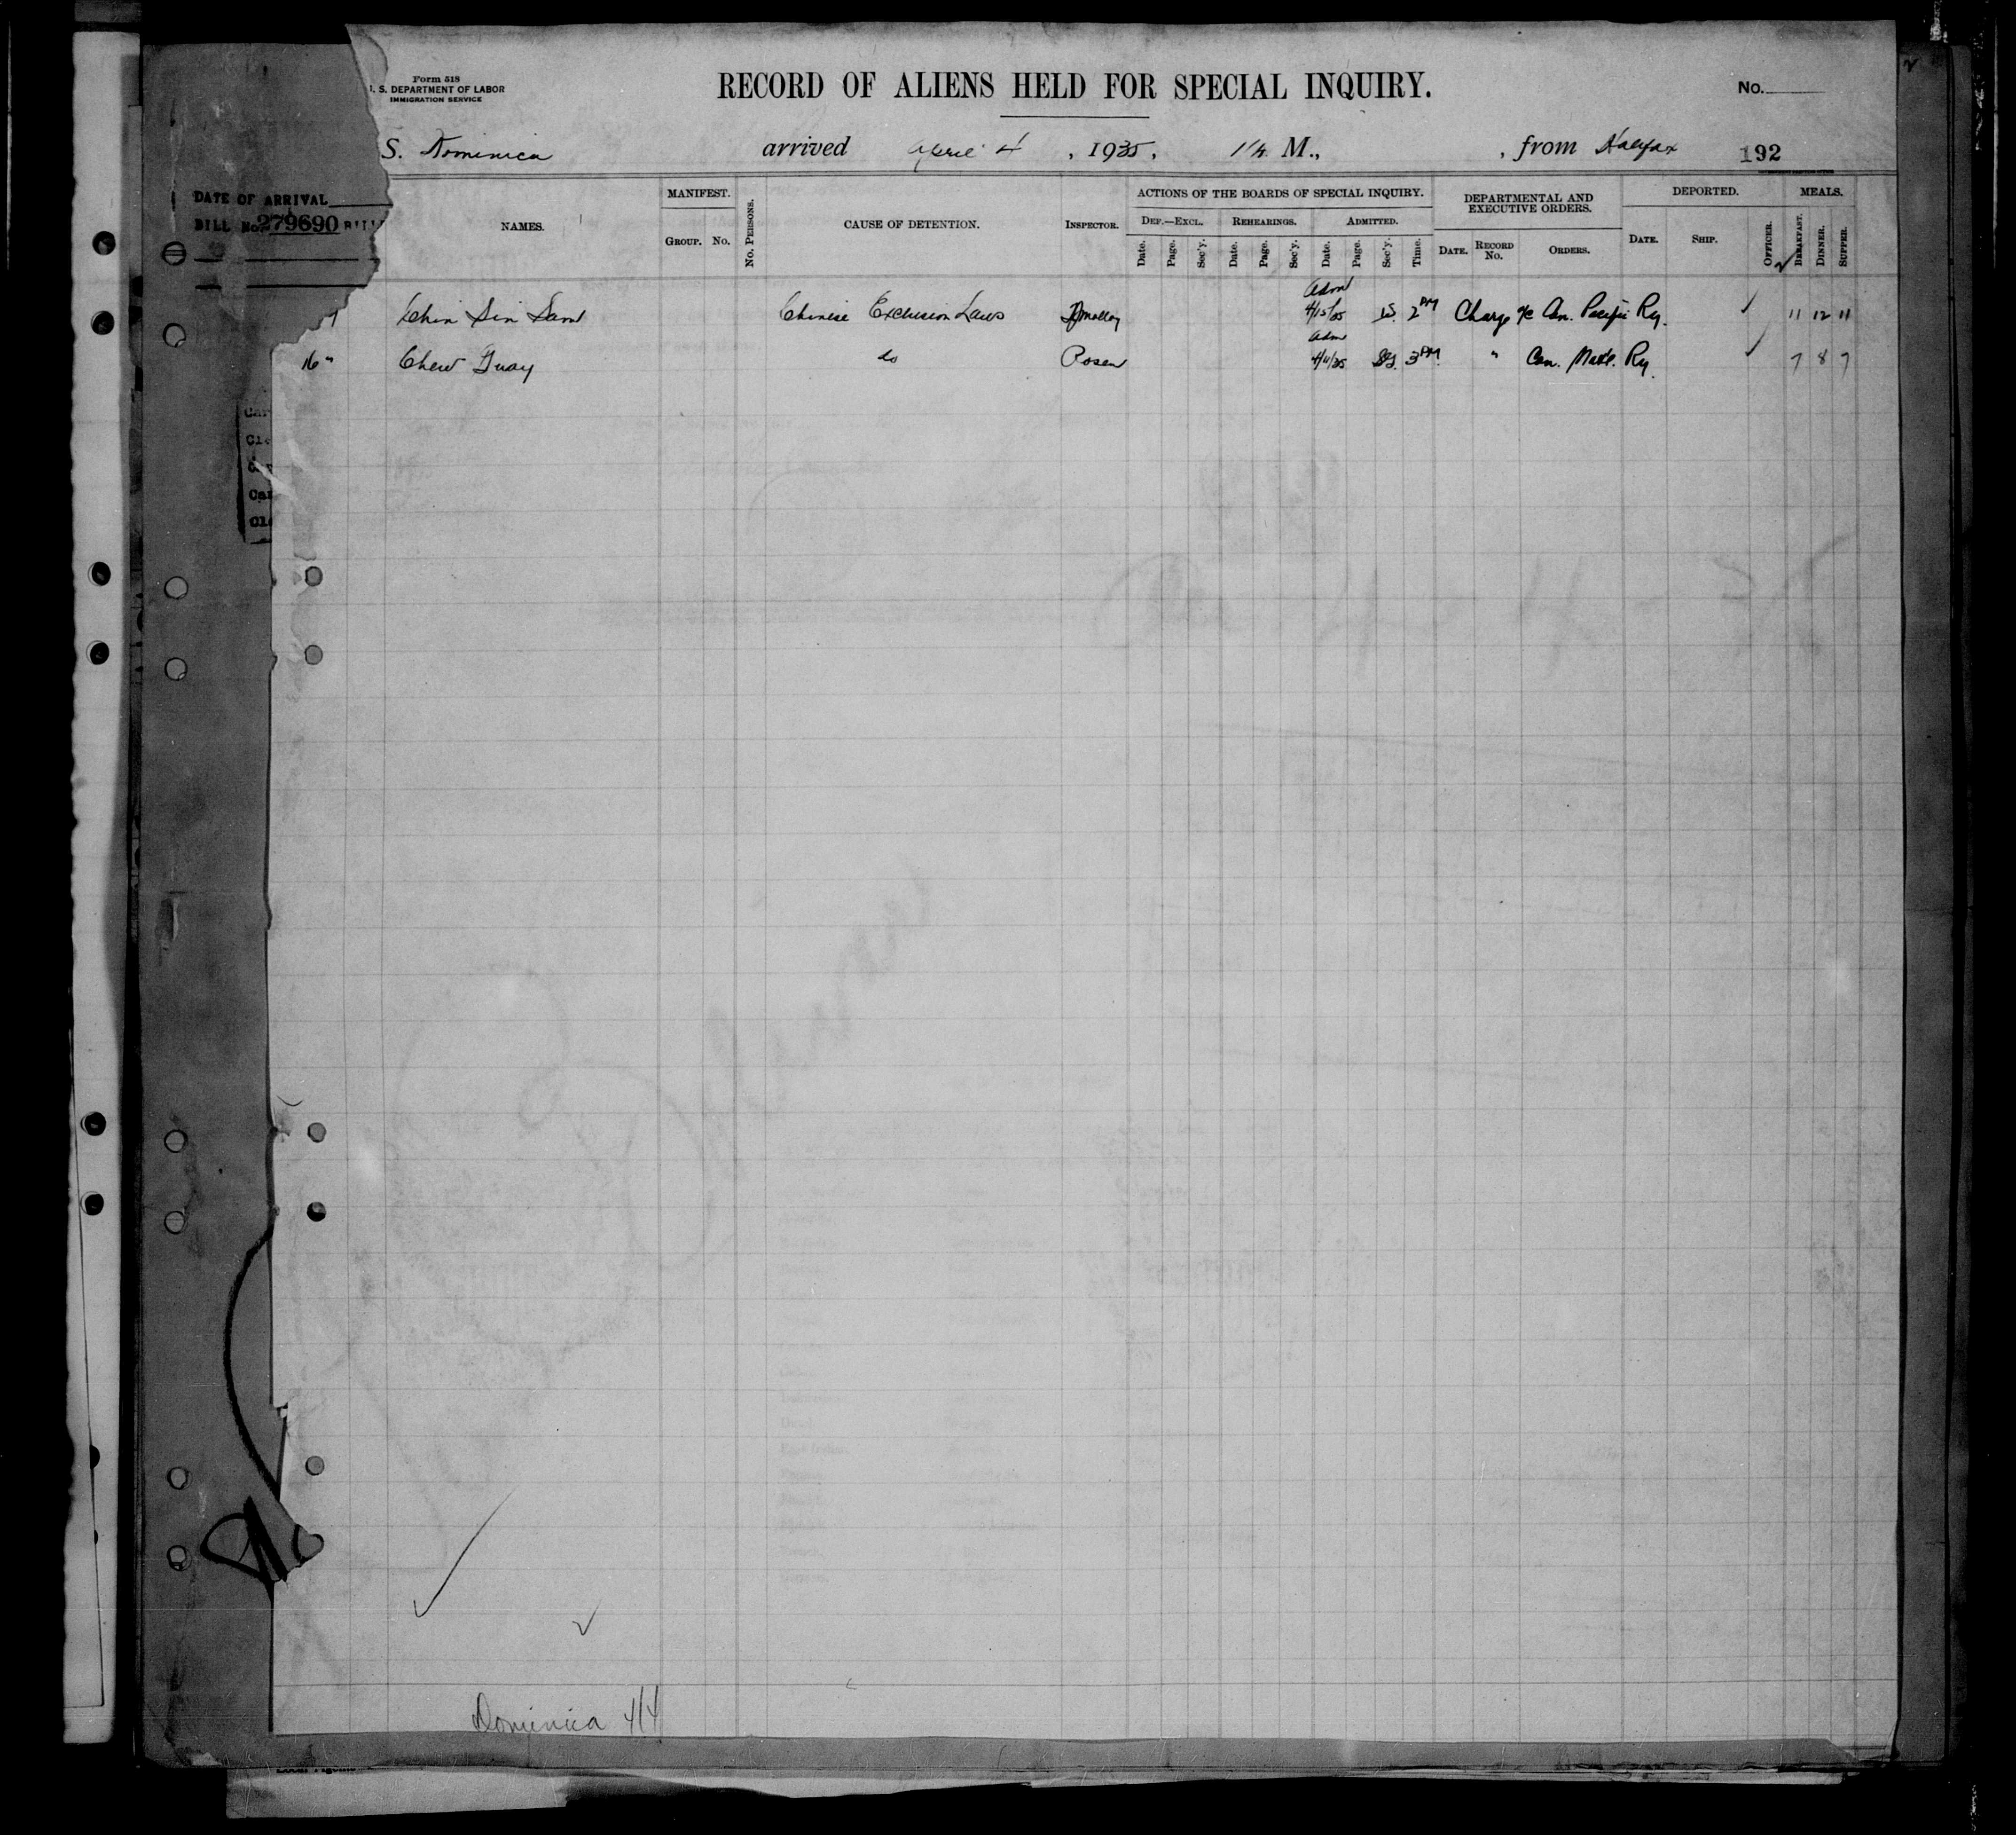 Form 518
U. S. DEPARTMENT OF LABOR
IMMIGRATION SERVICE
RECORD OF ALIENS HELD FOR SPECIAL INQUIRY.
No.
S. Dominica arrived April 4, 1925, M., , from Halifax 192
DATE OF ARRIVAL
BILL No. 279690
NAMES.
MANIFEST.
GROUP. No.
No. PERSONS.
CAUSE OF DETENTION.
INSPECTOR.
ACTIONS OF THE BOARDS OF SPECIAL INQUIRY.
DEF.—EXCL. REHEARINGS. ADMITTED.
Date. Page. Sec'y. Date. Page. Sec'y. Date. Page. Sec'y. Time.
DEPARTMENTAL AND EXECUTIVE ORDERS.
DATE. RECORD No. ORDERS.
DEPORTED.
DATE. SHIP.
OFFICER.
MEALS.
BREAKFAST. DINNER. SUPPER.
Chin Sin Sam Chinese Exclusion Laws Adm 4/15/25 2 PM Charge a/c Can. Pacific Ry. 11 12 11
16 " Chew Guay do Rosen Adm 4/11/25 3 PM " Can. Nat'l. Ry. 7 8 7
Dominica 4/4